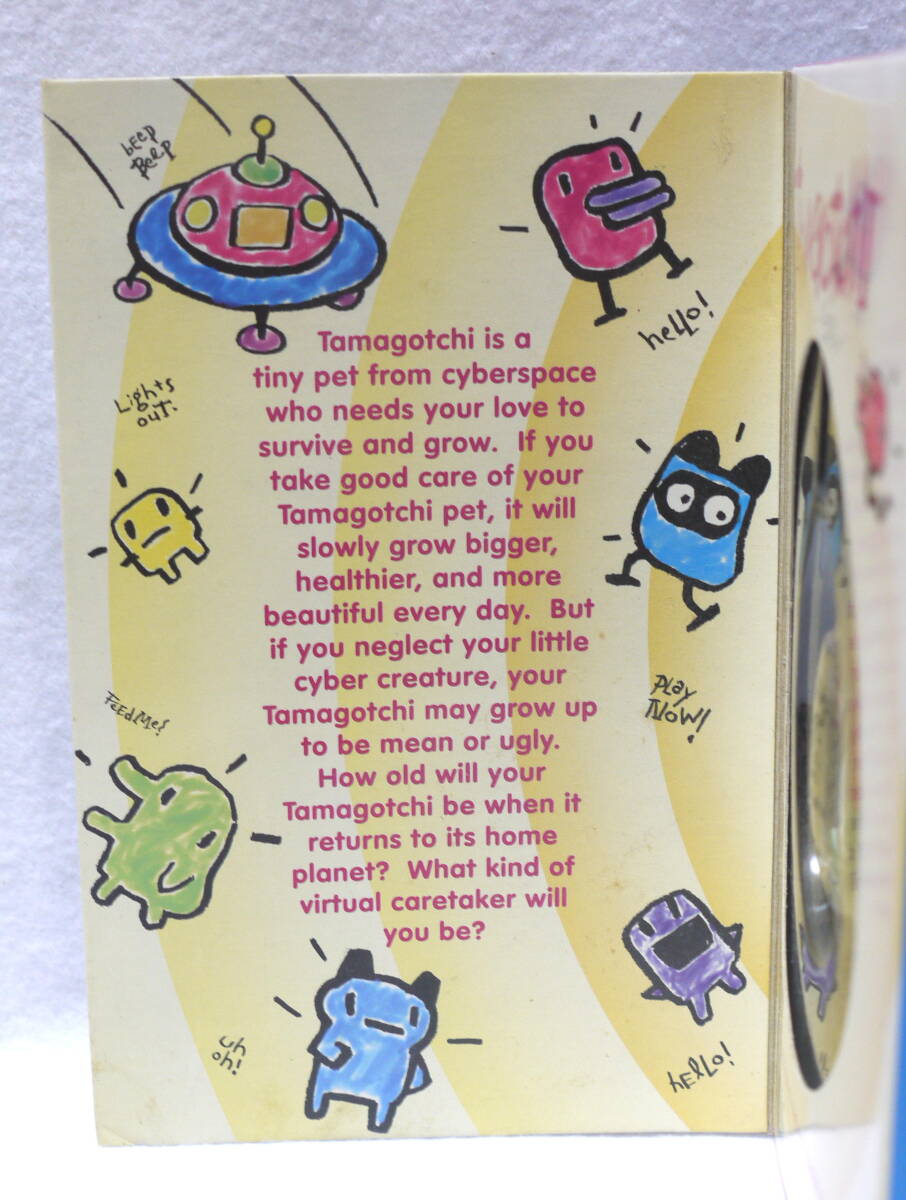 bEEp
BeEp
heLLo!
Tamagotchi is a
tiny pet from cyberspace
who needs your love to
survive and grow.  If you
take good care of your
Tamagotchi pet, it will
slowly grow bigger,
healthier, and more
beautiful every day.  But
if you neglect your little
cyber creature, your
Tamagotchi may grow up
to be mean or ugly.
How old will your
Tamagotchi be when it
returns to its home
planet?  What kind of
virtual caretaker will
you be?
Lights
out.
FeEdMe!
PLAY
NOW!
uh
oh!
hEllo!